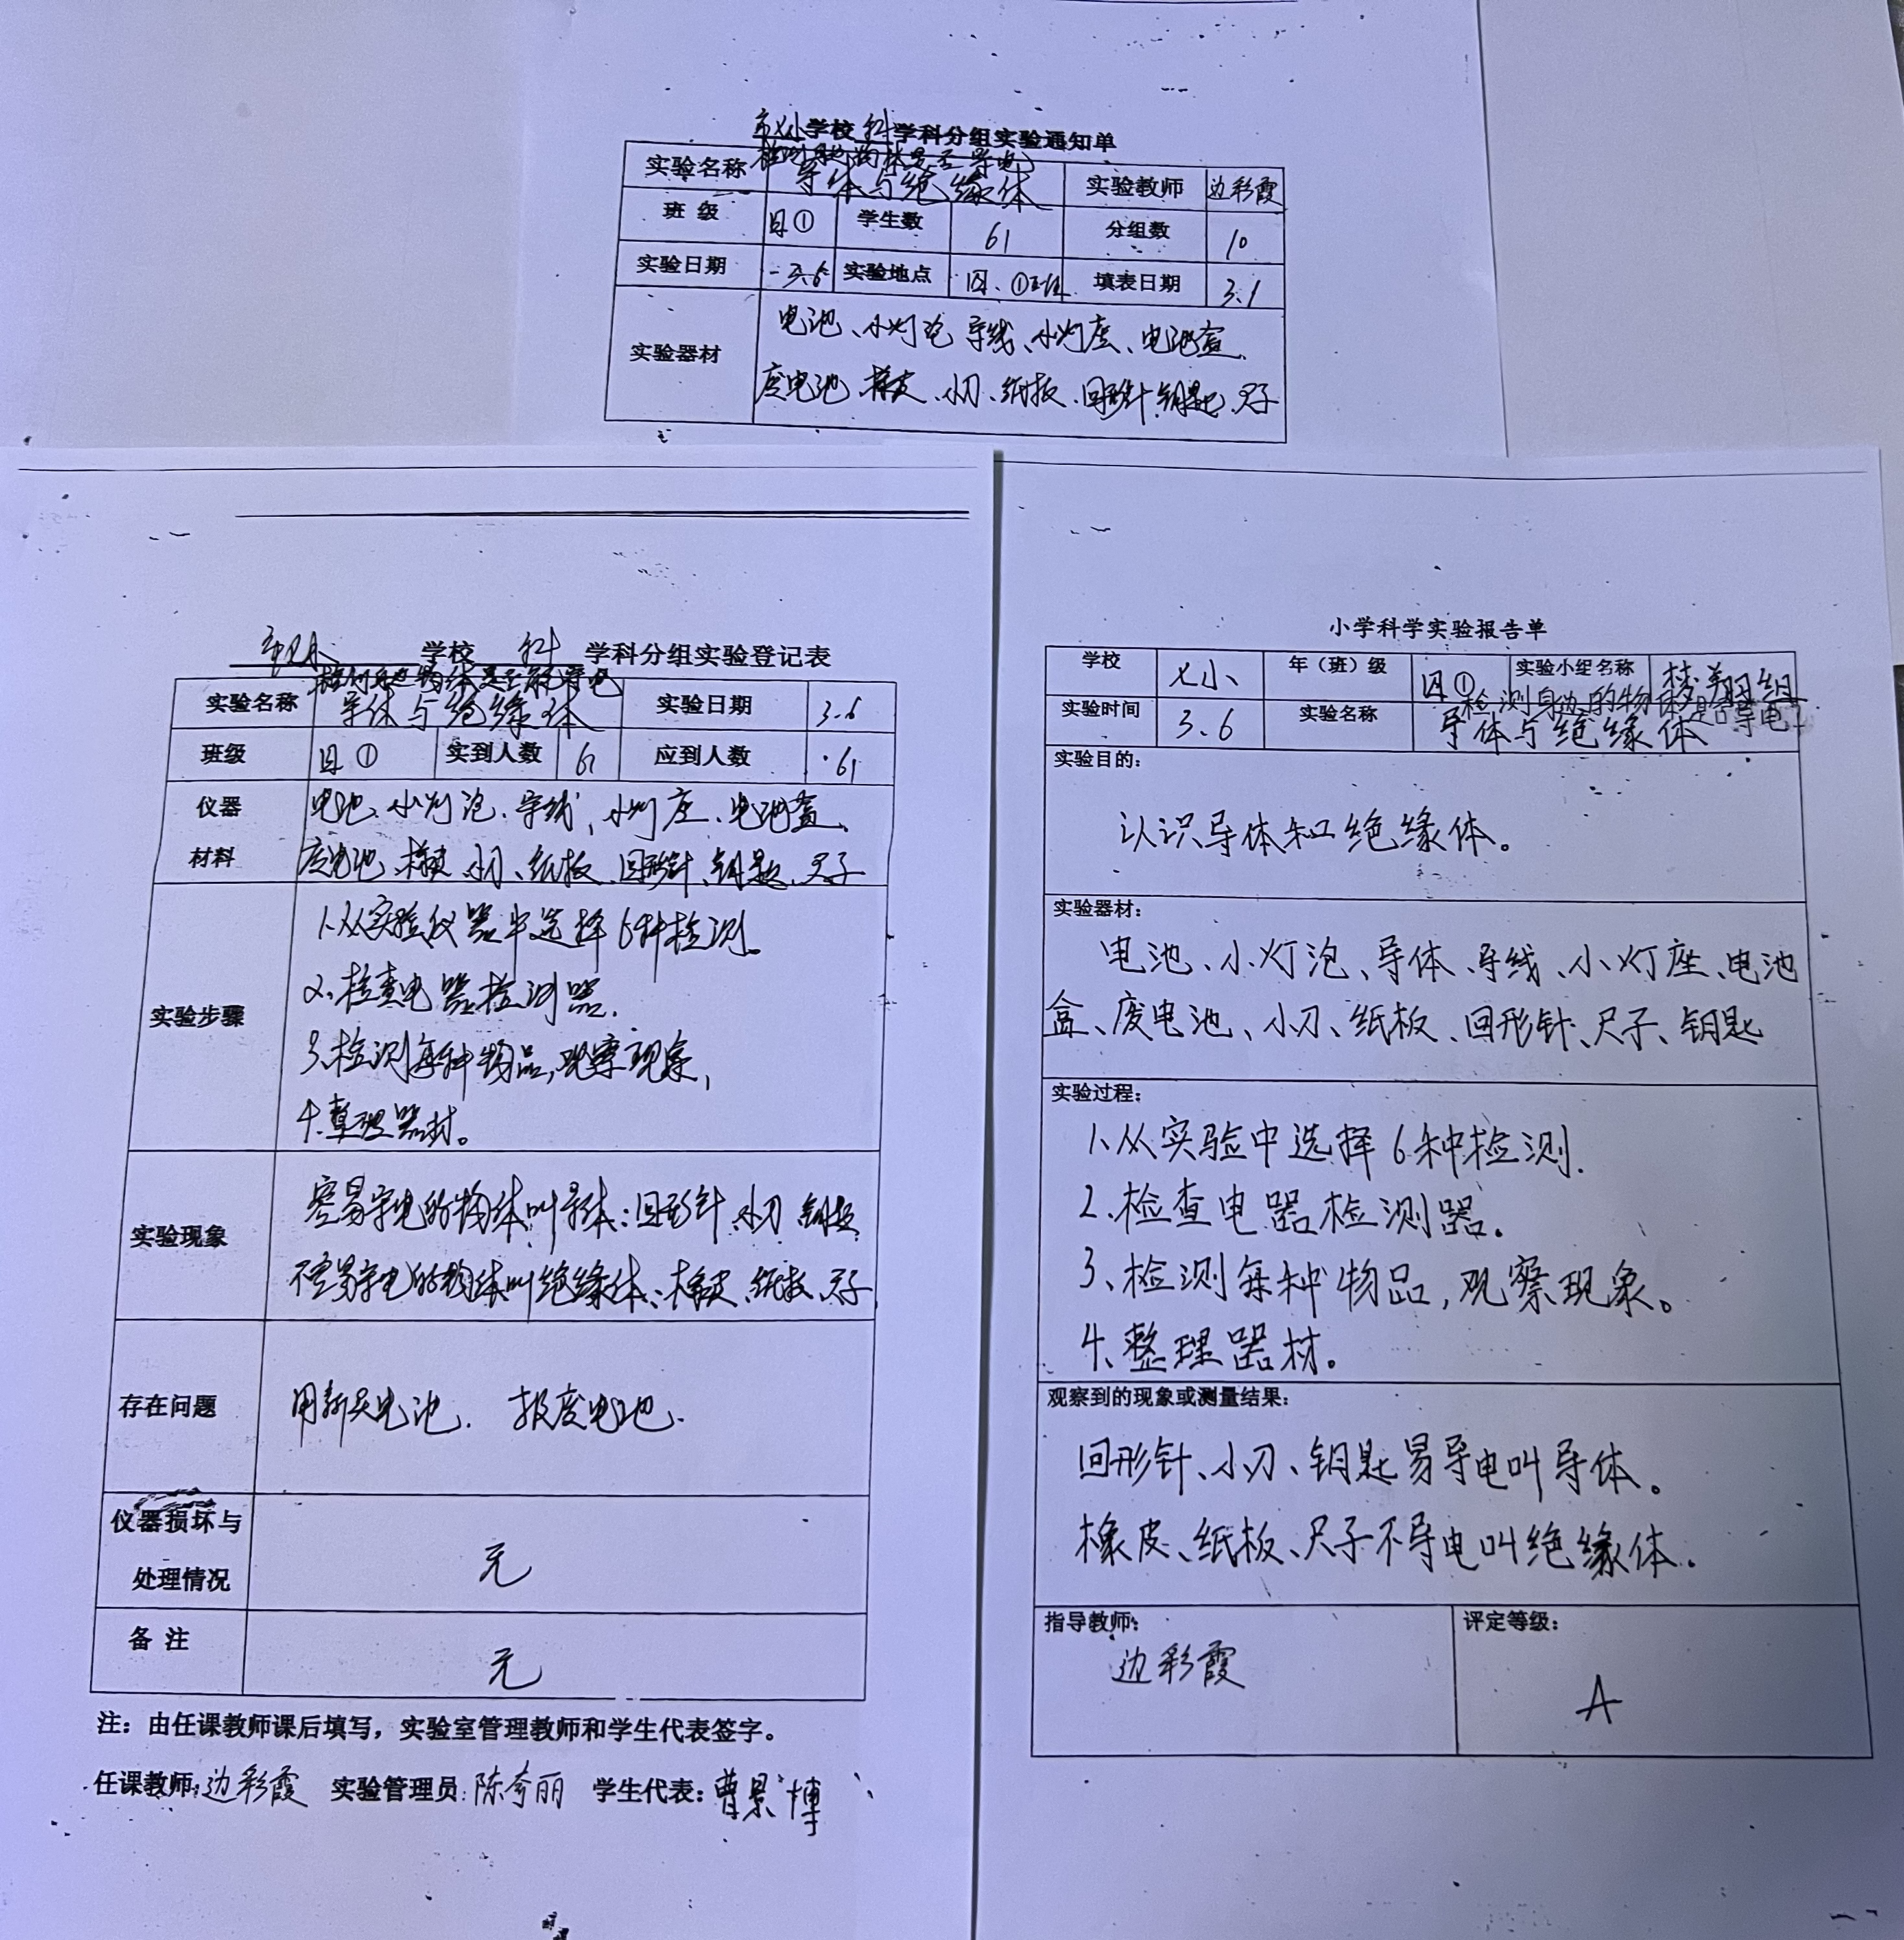 市七小学校 科 学科分组实验通知单
实验名称 检测身边物体是否导电 导体与绝缘体 实验教师 边彩霞
班级 四① 学生数 61 分组数 10
实验日期 3.6 实验地点 四、① 填表日期 3.1
实验器材 电池、小灯泡 导线、小灯座、电池盒、
废电池、橡皮、小刀、纸板、回形针、钥匙、尺子
学校 科 学科分组实验登记表
实验名称 导体与绝缘体 实验日期 3.6
班级 四① 实到人数 61 应到人数 61
仪器 电池、小灯泡、导线、小灯座、电池盒、
材料 废电池、橡皮、小刀、纸板、回形针、钥匙、尺子
实验步骤
1.从实验仪器中选择6种检测。
2.检查电器检测器.
3.检测每种物品,观察现象,
4.整理器材。
实验现象
容易导电的物体叫导体:回形针、小刀、钥匙
不容易导电的物体叫绝缘体:橡皮、纸板、尺子
存在问题 电池. 报废电池.
仪器损坏与
处理情况 无
备注 无
注：由任课教师课后填写，实验室管理教师和学生代表签字。
任课教师：边彩霞 实验管理员：陈奇丽 学生代表：曹景博
小学科学实验报告单
学校 七小 年（班）级 四① 实验小组名称 梦翔组
实验时间 3.6 实验名称 检测身边的物体是否导电 导体与绝缘体
实验目的：
认识导体和绝缘体。
实验器材：
电池、小灯泡、导体、导线、小灯座、电池
盒、废电池、小刀、纸板、回形针、尺子、钥匙
实验过程：
1、从实验中选择6种检测.
2、检查电器检测器.
3、检测每种物品,观察现象。
4、整理器材。
观察到的现象或测量结果：
回形针、小刀、钥匙易导电叫导体。
橡皮、纸板、尺子不导电叫绝缘体.
指导教师： 评定等级：
边彩霞 A